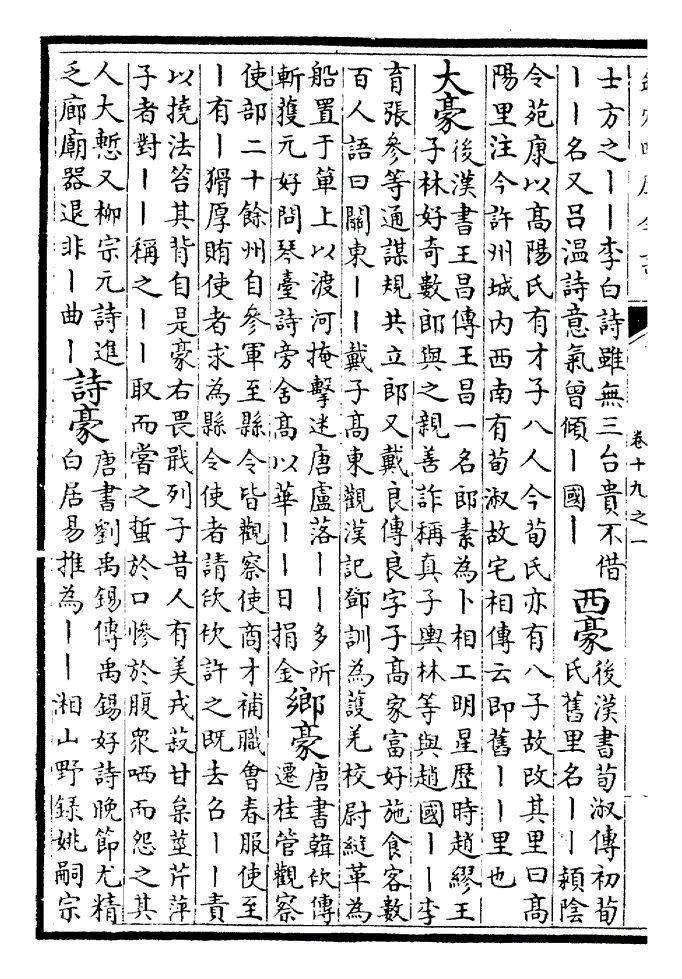 卷十九之一
士方之丨丨李白詩雖無三台貴不借
丨丨名又吕温詩意氣曾傾丨國丨
西豪
後漢書荀淑傳初荀
氏舊里名丨丨潁陰
令苑康以髙陽氏有才子八人今荀氏亦有八子故改其里曰髙
陽里注今許州城内西南有荀淑故宅相傳云即舊丨丨里也
大豪
後漢書王昌傳王昌一名郎素為卜相工明星歴時趙繆王
子林好奇數郎與之親善詐稱真子輿林等與趙國丨丨李
育張參等通謀規共立郎又戴良傳良字子髙家富好施食客數
百人語曰關東丨丨戴子髙東觀漢記鄧訓為護羌校尉縫革為
船置于箄上以渡河掩擊迷唐廬落丨丨多所
斬獲元好問琴臺詩旁舍髙以華丨丨日捐金
鄉豪
唐書韓佽傳
遷桂管觀察
使部二十餘州自參軍至縣令皆觀察使商才補職會春服使至
丨有丨猾厚賄使者求為縣令使者請佽佽許之既去召丨丨責
以撓法笞其背自是豪右畏戢列子昔人有美戎菽甘枲莖芹萍
子者對丨丨稱之丨丨取而嘗之蜇於口慘於腹衆哂而怨之其
人大慙又柳宗元詩進
乏廊廟器退非丨曲丨
詩豪
唐書劉禹錫傳禹錫好詩晚節尤精
白居易推為丨丨湘山野録姚嗣宗